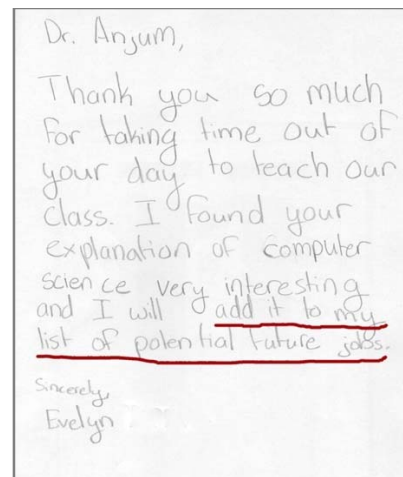 Dr. Anjum,
Thank you so much
for taking time out of
your day to teach our
class. I found your
explanation of computer
science very interesting
and I will add it to my
list of potential future jobs.
Sincerely,
Evelyn